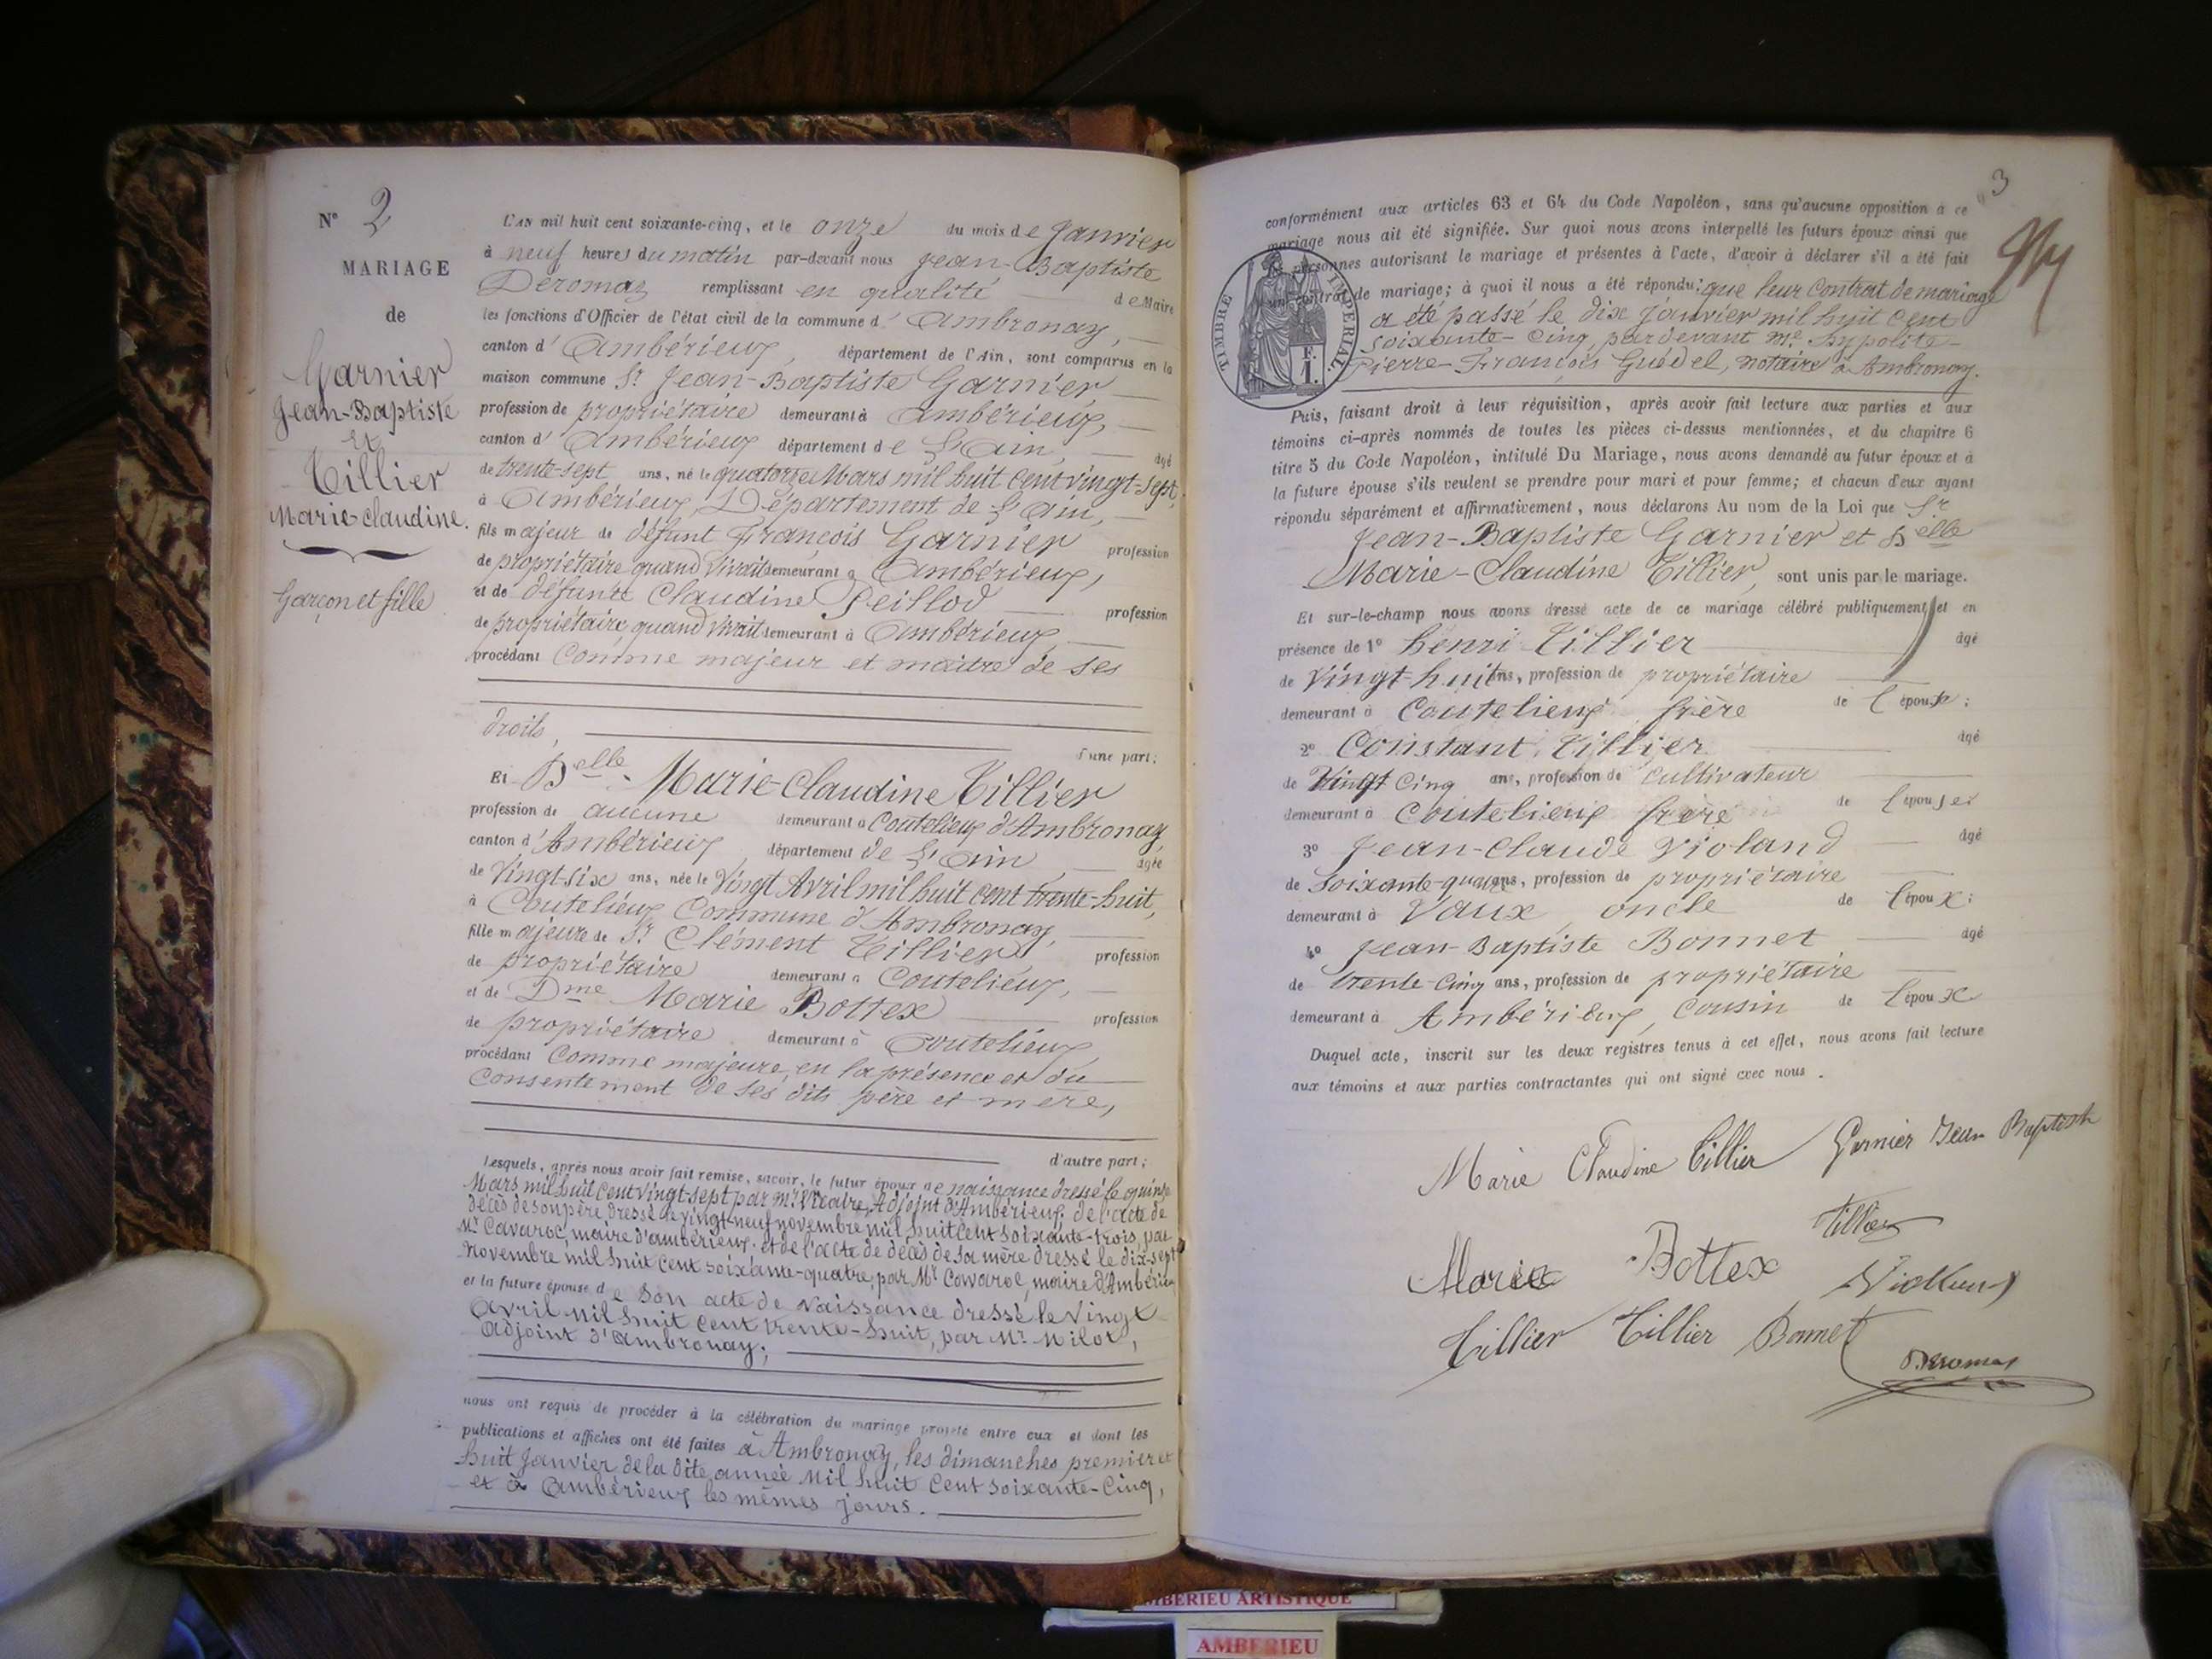 N° 2
MARIAGE
de
Garnier
Jean-Baptiste
Et
Tillier
Marie-Claudine.
Garçon et fille
L'AN mil huit cent soixante-cinq, et le onze du mois de Janvier
à neuf heures du matin par-devant nous Jean-Baptiste
Deromas remplissant en qualité de Maire
les fonctions d'Officier de l'état civil de la commune d'Ambronay,
canton d'Ambérieux, département de l'Ain, sont comparus en la
maison commune Sr Jean-Baptiste Garnier
profession de propriétaire demeurant à Ambérieux,
canton d'Ambérieux département de L'Ain, âgé
de trente-sept ans, né le quatorze Mars mil huit cent vingt-sept,
à Ambérieux, Département de L'Ain,
fils majeur de défunt François Garnier profession
de propriétaire quand vivait demeurant à Ambérieux,
et de défunte Claudine Peillod profession
de propriétaire, quand vivait demeurant à Ambérieux,
procédant Comme majeur et maître de ses
droits, d'une part;
Et Delle Marie-Claudine Tillier
profession de aucune demeurant à Coutelieux d'Ambronay,
canton d'Ambérieux, département de L'Ain, âgée
de vingt-six ans, née le vingt Avril mil huit cent trente-huit,
à Coutelieux Commune d'Ambronay,
fille majeure de Sr Clément Tillier profession
de propriétaire demeurant à Coutelieux,
et de Dme Marie Bottex profession
de propriétaire demeurant à Coutelieux,
procédant Comme majeure, en la présence et du
Consentement de ses dits père et mère,
d'autre part;
Lesquels, après nous avoir fait remise, savoir, le futur époux de naissance dressé le quinze
Mars mil huit cent vingt-sept par Mr Vicaire, Adjoint d'Ambérieux; de l'acte de
décès de son père dressé le vingt-neuf novembre mil huit cent soixante-trois, par
Mr Cavaroc, maire d'Ambérieux. et de l'acte de décès de sa mère dressé le dix-sept
Novembre mil huit cent soixante-quatre, par Mr Cavaroc, maire d'Ambérieux
et la future épouse de Son acte de Naissance dressé le Vingt
Avril Mil huit cent trente-huit, par Mr Milot,
adjoint d'Ambronay;
nous ont requis de procéder à la célébration du mariage projeté entre eux et dont les
publications et affiches ont été faites à Ambronay, les dimanches premier et
huit Janvier de la dite année Mil huit Cent soixante-Cinq,
et à Ambérieux les mêmes jours.
3
conformément aux articles 63 et 64 du Code Napoléon, sans qu'aucune opposition à ce
mariage nous ait été signifiée. Sur quoi nous avons interpellé les futurs époux ainsi que
les personnes autorisant le mariage et présentes à l'acte, d'avoir à déclarer s'il a été fait
un contrat de mariage; à quoi il nous a été répondu: que leur Contrat de mariage
a été passé le dix Janvier mil huit Cent
soixante-Cinq, pardevant Me Hypolite-
Pierre-François Guedel, notaire à Ambronay.
TIMBRE IMPÉRIAL.
F.
1.
Puis, faisant droit à leur réquisition, après avoir fait lecture aux parties et aux
témoins ci-après nommés de toutes les pièces ci-dessus mentionnées, et du chapitre 6
titre 5 du Code Napoléon, intitulé Du Mariage, nous avons demandé au futur époux et à
la future épouse s'ils veulent se prendre pour mari et pour femme; et chacun d'eux ayant
répondu séparément et affirmativement, nous déclarons Au nom de la Loi que Sr
Jean-Baptiste Garnier et Delle
Marie-Claudine Tillier, sont unis par le mariage.
Et sur-le-champ nous avons dressé acte de ce mariage célébré publiquement et en
présence de 1° henri Tillier âgé
de Vingt-huit ans, profession de propriétaire
demeurant à Coutelieux frère de l'épouse;
2° Constant Tillier âgé
de Vingt Cinq ans, profession de Cultivateur
demeurant à Coutelieux frère de l'épouse;
3° Jean-Claude Violand âgé
de Soixante-quatre ans, profession de propriétaire
demeurant à Vaux, oncle de l'époux;
4° Jean-Baptiste Bonnet âgé
de trente-Cinq ans, profession de propriétaire
demeurant à Ambérieux, Cousin de l'époux
Duquel acte, inscrit sur les deux registres tenus à cet effet, nous avons fait lecture
aux témoins et aux parties contractantes qui ont signé avec nous.
Marie Claudine Tillier Garnier Jean Baptiste
Tillier
Marie Bottex
Tillier Tillier Bonnet
Deromas
AMBERIEU ARTISTIQUE
AMBERIEU